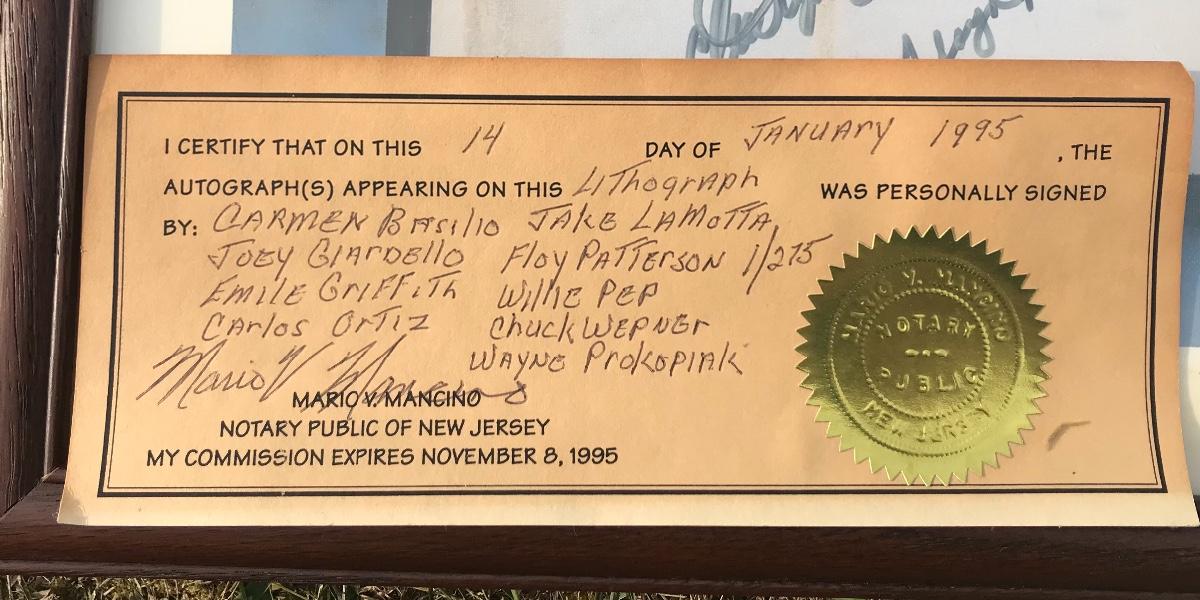 I CERTIFY THAT ON THIS 14 DAY OF JANUARY 1995, THE
AUTOGRAPH(S) APPEARING ON THIS LiThograph WAS PERSONALLY SIGNED
BY: CARMEN BASilio JAKE LAMOTTA
JOEY GIARDELLO FloY PATTERSON 1/275
EMILE GRIFFITH WilliE PEP
CARlos ORTIZ ChuCK WEPNER
WAYNE PROKOPIAK
Mario V Mancino
MARIO V. MANCINO
NOTARY PUBLIC OF NEW JERSEY
MY COMMISSION EXPIRES NOVEMBER 8, 1995
MARIO V. MANCINO
NOTARY
PUBLIC
NEW JERSEY